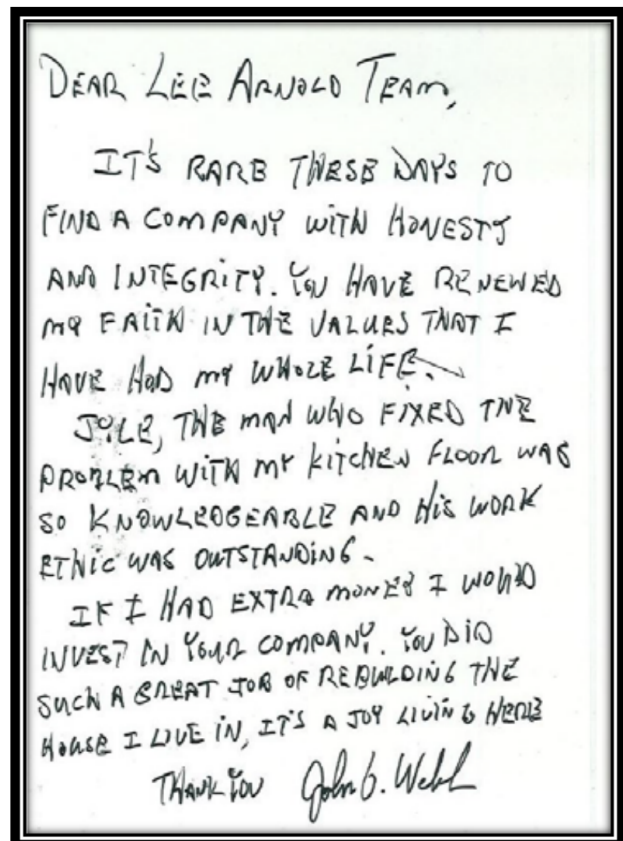 DEAR LEE ARNOLD TEAM,
IT'S RARE THESE DAYS TO
FIND A COMPANY WITH HONESTY
AND INTEGRITY. YOU HAVE RENEWED
MY FAITH IN THE VALUES THAT I
HAVE HAD MY WHOLE LIFE.
THE MAN WHO FIXED THE
PROBLEM WITH MY KITCHEN FLOOR WAS
SO KNOWLEDGEABLE AND HIS WORK
ETHIC WAS OUTSTANDING.
IF I HAD EXTRA MONEY I WOULD
INVEST IN YOUR COMPANY. YOU DID
SUCH A GREAT JOB OF REBUILDING THE
HOUSE I LIVE IN, IT'S A JOY LIVING HERE
THANK YOU John G. Webb